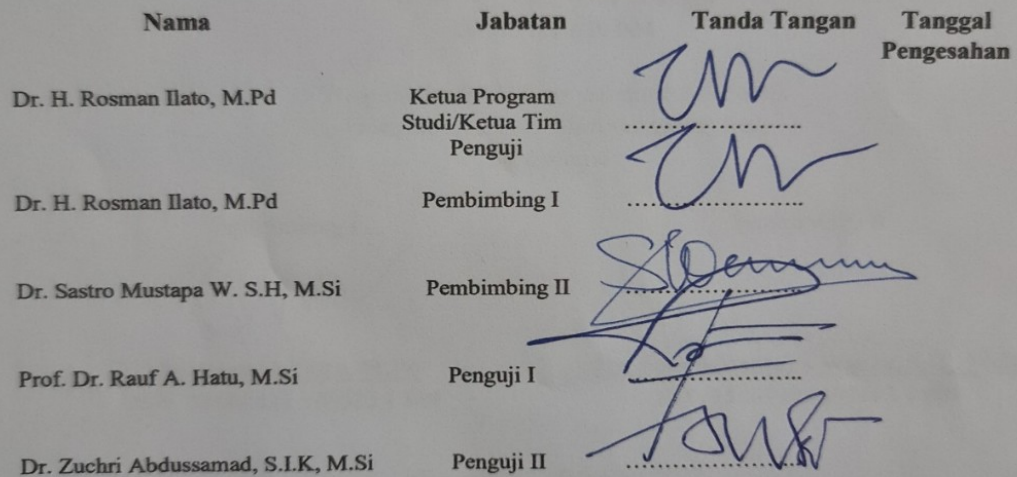 Nama Jabatan Tanda Tangan Tanggal
Pengesahan
Dr. H. Rosman Ilato, M.Pd Ketua Program
Studi/Ketua Tim ........................
Penguji
Dr. H. Rosman Ilato, M.Pd Pembimbing I ........................
Dr. Sastro Mustapa W. S.H, M.Si Pembimbing II ........................
Prof. Dr. Rauf A. Hatu, M.Si Penguji I ........................
Dr. Zuchri Abdussamad, S.I.K, M.Si Penguji II ........................